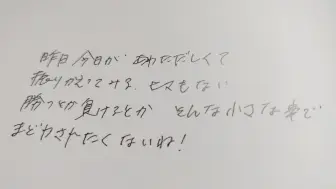 昨日 今日が あわただしくて
振りかえってみる ヒマもない
勝つとか 負けるとか そんな小さな事で
まどわされたくないね!